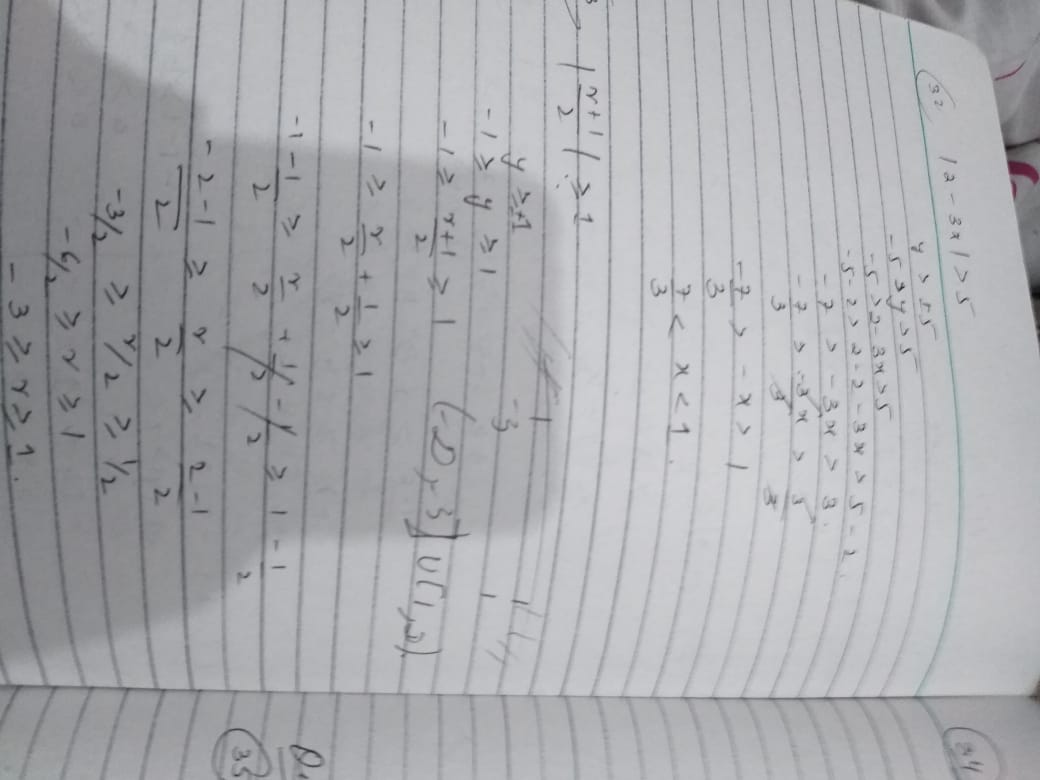 32) |2 - 3x| > 5
y > ±5
-5 > y > 5
-5 > 2 - 3x > 5
-5 - 2 > 2 - 2 - 3x > 5 - 2
-7 > -3x > 3
-7/3 > -3x/3 > 3/3
-7/3 > -x > 1
7/3 < x < 1.
|r+1/2| ≥ 1
y ≥ ±1
-1 ≥ y ≥ 1
-3 1
-1 ≥ r+1/2 ≥ 1 (-∞, -3] ∪ [1, ∞)
-1 ≥ r/2 + 1/2 ≥ 1
-1 - 1/2 ≥ r/2 + 1/2 - 1/2 ≥ 1 - 1/2
-2-1/2 ≥ r/2 ≥ 2-1/2
-3/2 ≥ r/2 ≥ 1/2
-6/2 ≥ r ≥ 1
-3 ≥ r ≥ 1.
34
35